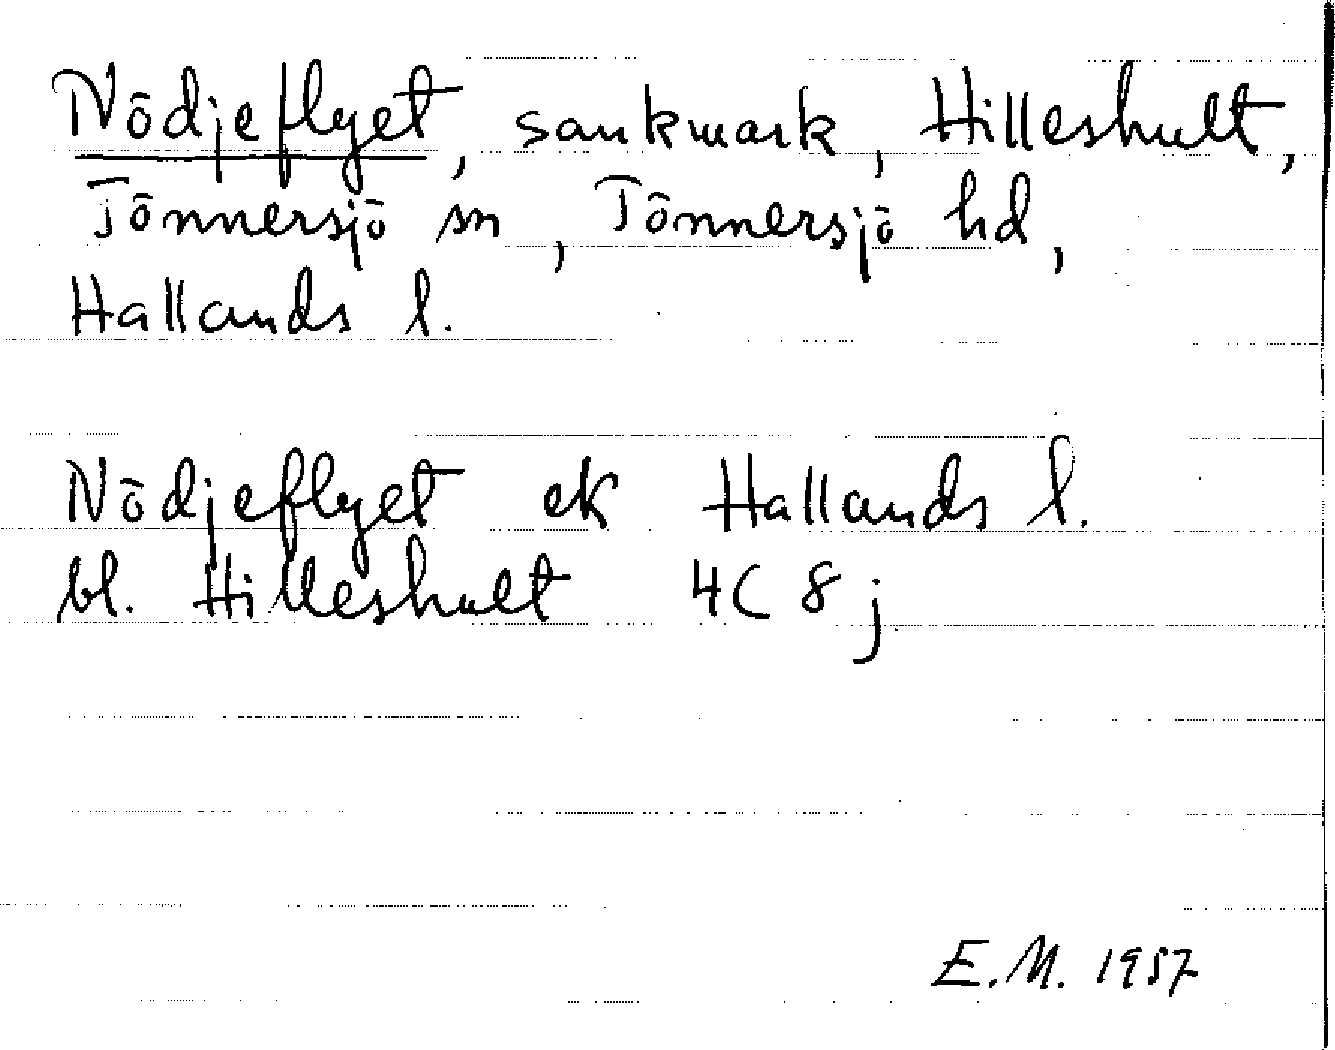 Nödjeflyet, sankmark, Hilleshult,
Tönnersjö sn, Tönnersjö hd,
Hallands l.
Nödjeflyet ek Hallands l.
bl. Hilleshult 4C 8j
E.M. 1957